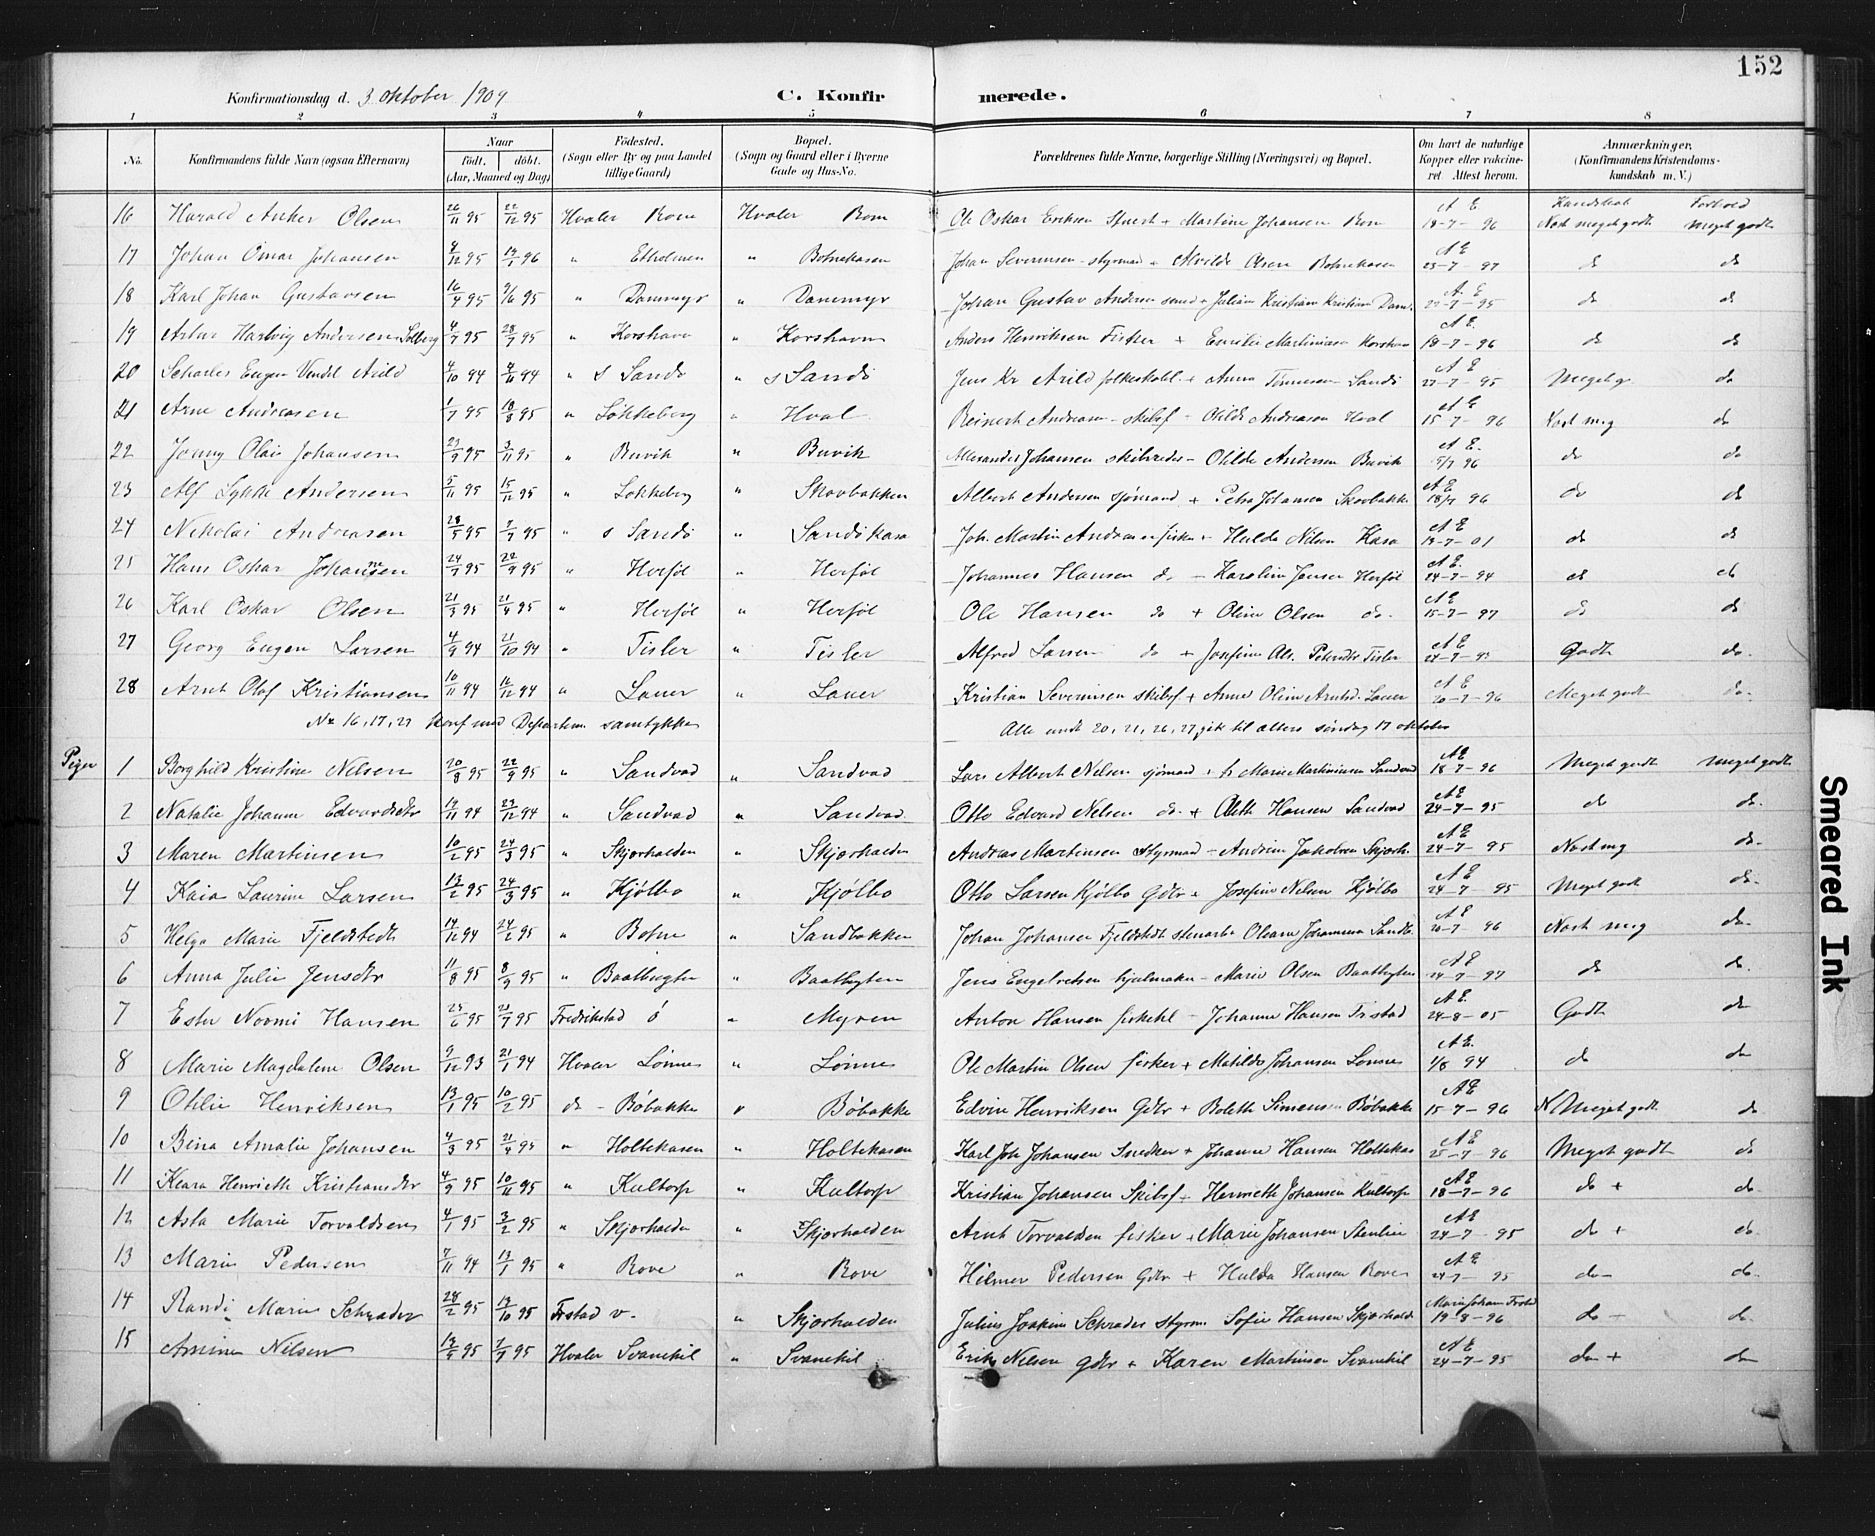 152
Konfirmationsdag d. 3 oktober 1909 C. Konfirmerede.
1 2 3 4 5 6 7 8
No. Konfirmandens fulde Navn (ogsaa Efternavn) Naar født. døbt. (Aar, Maaned og Dag) Fødested. (Sogn eller By og paa Landet tillige Gaard) Bopæl. (Sogn og Gaard eller i Byerne Gade og Hus-No. Forældrenes fulde Navne, borgerlige Stilling (Næringsvei) og Bopæl. Om havt de naturlige Kopper eller vakcineret. Attest herom. Anmærkninger. (Konfirmandens Kristendomskundskab m. V.)
Kundskab Forhold
16 Harald Anker Olsen 26/11 95 22/12 95 Hvaler Rom Hvaler Rom Ole Oskar Eriksen + Martine Johansen Rom A E 18-7-96 Nest meget godt Meget godt
17 Johan Omar Johansen 4/12 95 19/1 96 " Etholmen " Botnekasen Johan Severinsen styrmd + Alvilde Olsen Botnekasen A E 23-7-97 do do
18 Karl Johan Gustavsen 16/4 95 " Dammyr " Dammyr Johan Gustav Andersen + Juliane Kristiane Kristians Dam. A E 27-7-95 do do
19 Artur Hartvig Andersen Solberg 4/7 95 28/7 95 " Korshavn " Korshavn Anders Henriksen Fisker + Emilie Martiniusen Korshavn A E 18-7-96 do do
20 Scharles Eugen Vendel Arild 4/10 94 94 " s Sandø " s Sandø Jens Kr Arild folkeskol. + Anna Tønnesen Sandø A E 27-7-95 Meget g. do
21 Arne Andreasen 1/7 95 18/8 95 " Løkkeberg " Hval Reinert Andreasen - skibsf - Otilde Andreasen Hval A E 15-7-96 Nest meg do
22 Jenny Olai Johansen 23/9 95 3/11 95 " Buvik " Buvik Alexander Johansen skibsreder - Otilde Andersen Buvik A E. 5/7 96 do do
23 Alf Lykke Andersen 5/11 95 15/12 95 " Løkkeberg " Skovbakken Albert Andersen sjømand + Petra Johansen Skovbakke A E 18/7 96 do do
24 Nikolai Andreasen 28/5 95 7/7 95 " s Sandø " Sandøkasa Joh. Martin Andreasen fisker + Hulda Nilsen Kasa A E 19-7-01 do do
25 Hans Oskar Johannsen 24/7 95 22/9 95 " Herføl " Herføl Johannes Hansen do - Karoline Jensen Herføl A E. 24-7-94 do do
26 Karl Oskar Olsen 21/3 95 21/4 95 " Herføl " Herføl Ole Hansen do + Oline Olsen do. A E 15-7-97 do do
27 Georg Eugen Larsen 4/9 94 21/10 94 " Tisler " Tisler Alfred Larsen do + Josefine Als. Tisler A E Godt do.
28 Arnt Olaf Kristiansen 10/11 94 16/12 94 " Lauer " Lauer Kristian Severinsen skibsf + Anne Oline Arntsd. Lauer A E 20-7-96 Meget godt do.
No 16, 17, 27 Konf med Departem. samtykke Alle undt 20, 21, 26, 27 gik til alters søndag 17 oktober
Piger 1 Borghild Kristine Nilsen 20/8 95 22/9 95 " Sandvad " Sandvad Lars Albert Nilsen sjømand + Marie Martiniusen Sandvad A E 18-7-96 Meget godt Meget godt
2 Natalie Johanne Edvardsdtr 14/11 94 27/12 94 " Sandvad " Sandvad Otto Edvard Nilsen do. + Aleth Hansen Sandvad A E 24-7-95 do do.
3 Maren Martinsen 10/2 95 24/3 95 " Skjærhalden " Skjærhalden Andreas Martinsen styrmd - Andrine Jakobsen Skjærh. A E 24-7-95 Nest mg do.
4 Kaia Laurine Larsen 13/2 95 24/3 95 " Kjølbo " Kjølbo Otto Larsen Kjølbo Gdbr + Josefine Nilsen Kjølbo A E 24-7-95 Meget godt do.
5 Helga Marie Fjeldstedt 14/12 94 24/2 95 " Botne " Sandbakken Johan Johansen Fjeldstedt stenarb. Oleane Johannesen Sandb. A E 20-7-96 Nest meg do.
6 Anna Julie Jensdtr 11/8 95 8/9 95 " Baatbugten " Baatbugten Jens Engelretsen hjulmaker - Marie Olsen Baatbugten A E 24-7-97 do do.
7 Ester Noomi Hansen 25/6 95 23/7 95 Fredrikstad Ø " Myren Anton Hansen fiskehl - Johanne Hansen Frstad A E. 24-8-05 Godt do
8 Marie Magdalene Olsen 9/12 93 21/1 94 Hvaler Lønne " Lønne Ole Martin Olsen fisker + Matilde Johansen Lønne A E. 1/8 94 do do
9 Otilie Henriksen 13/1 95 10/2 95 do - Bøbakke " Bøbakke Edvin Henriksen Gdbr + Boleth Simensen Bøbakke A E 15-7-96 N Meget godt do
10 Bina Amalie Johansen 4/3 95 21/4 95 " Holtekasen " Holtekasen Karl Joh Johansen Snedker + Johanne Hansen Holtekas A E 25-7-96 Meget godt do
11 Klara Henriette Kristiansdtr 4/9 95 10/11 95 " Kultorp " Kultorp Kristian Johansen Skibsf - Henriette Johansen Kultorp A E 18-7-96 do + do.
12 Asta Marie Torvaldsen 4/1 95 3/2 95 " Skjærhalden " Skjærhalden Arnt Torvaldsen fisker + Marie Johansen Stenlien A E 24-7-95 do + do.
13 Marie Pedersen 7/11 94 13/1 95 " Rove " Rove Hilmer Pedersen Gdbr + Hulda Hansen Rove A E 24-7-95 do - do.
14 Randi Marie Schrader 28/2 95 13/10 95 Frstad v. " Skjærhalden Julius Joakim Schrader styrm Sofie Hansen Skjærhald. 19-8-96 do - do.
15 Amine Nilsen 13/5 95 7/7 95 Hvaler Svanekil " Svanekil Erik Nilsen gdbr + Karen Martinsen Svanekil A E 24-7-95 do + do
Smeared Ink